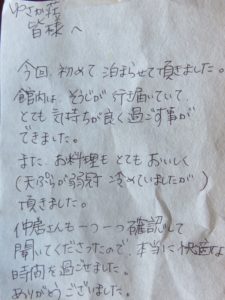 ゆさか荘
皆様へ
今回、初めて泊まらせて頂きました。
館内は、そうじが行き届いていて、
とても気持ちが良く過ごす事が
できました。
また、お料理もとてもおいしく
(天ぷらが弱冠冷めていましたが)
頂きました。
仲居さんも一つ一つ確認して
聞いてくださったので、本当に快適な
時間を過ごせました。
ありがとうございました。